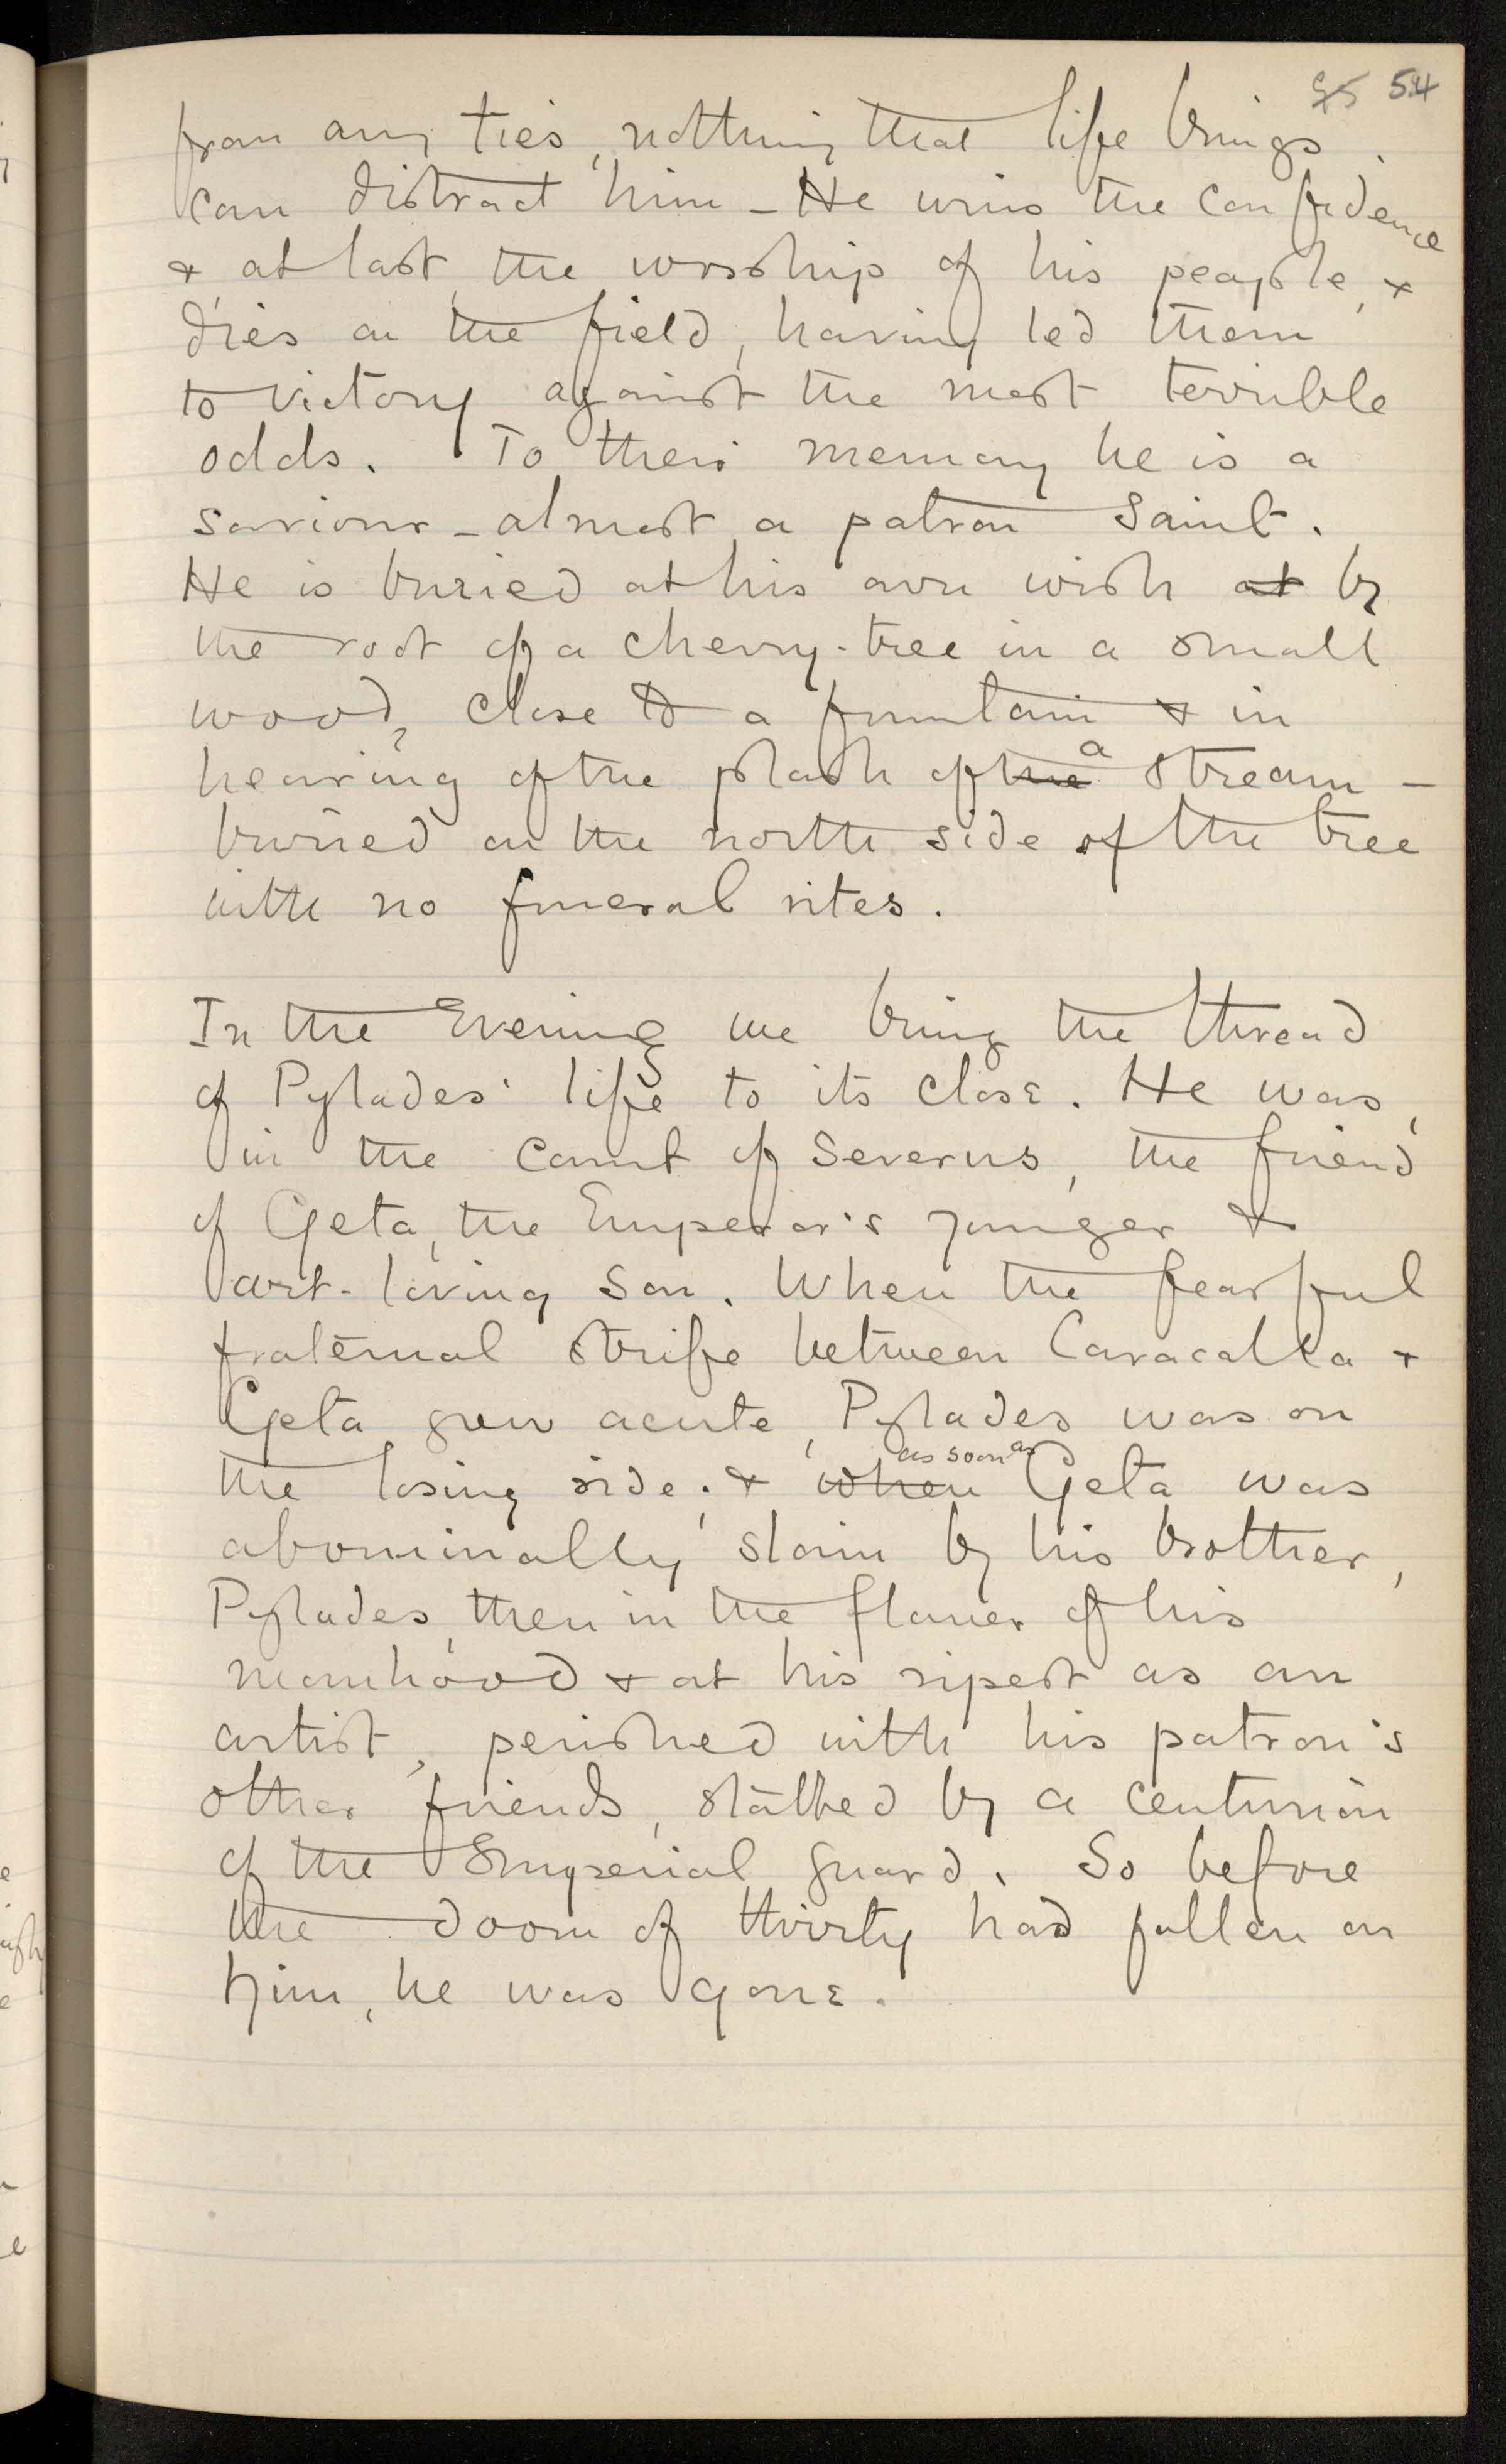 55 54
from any ties, nothing that life brings
can distract him - He wins the confidence
& at last, the worship of his people, &
dies on the field, having led them
to victory against the most terrible
odds. To their memory he is a
saviour - almost a patron Saint.
He is buried at his own wish at by
the root of a cherry-tree in a small
wood, close to a fountain & in
hearing of the plash of the a stream -
buried on the north side of the tree
with no funeral rites.
In the Evening we bring the thread
of Pylades' life to its close. He was,
in the Court of Severus, the friend
of Geta, the Emperor's younger &
art-loving son. When the fearful
fraternal strife between Caracalla &
Geta grew acute, Pylades was on
the losing side; & when as soon as Geta was
abominally slain by his brother,
Pylades, then in the flower of his
manhood & at his ripest as an
artist, perished with his patron's
other friends, stabbed by a centurion
of the Imperial guard. So before
the doom of thirty had fallen on
him, he was gone.